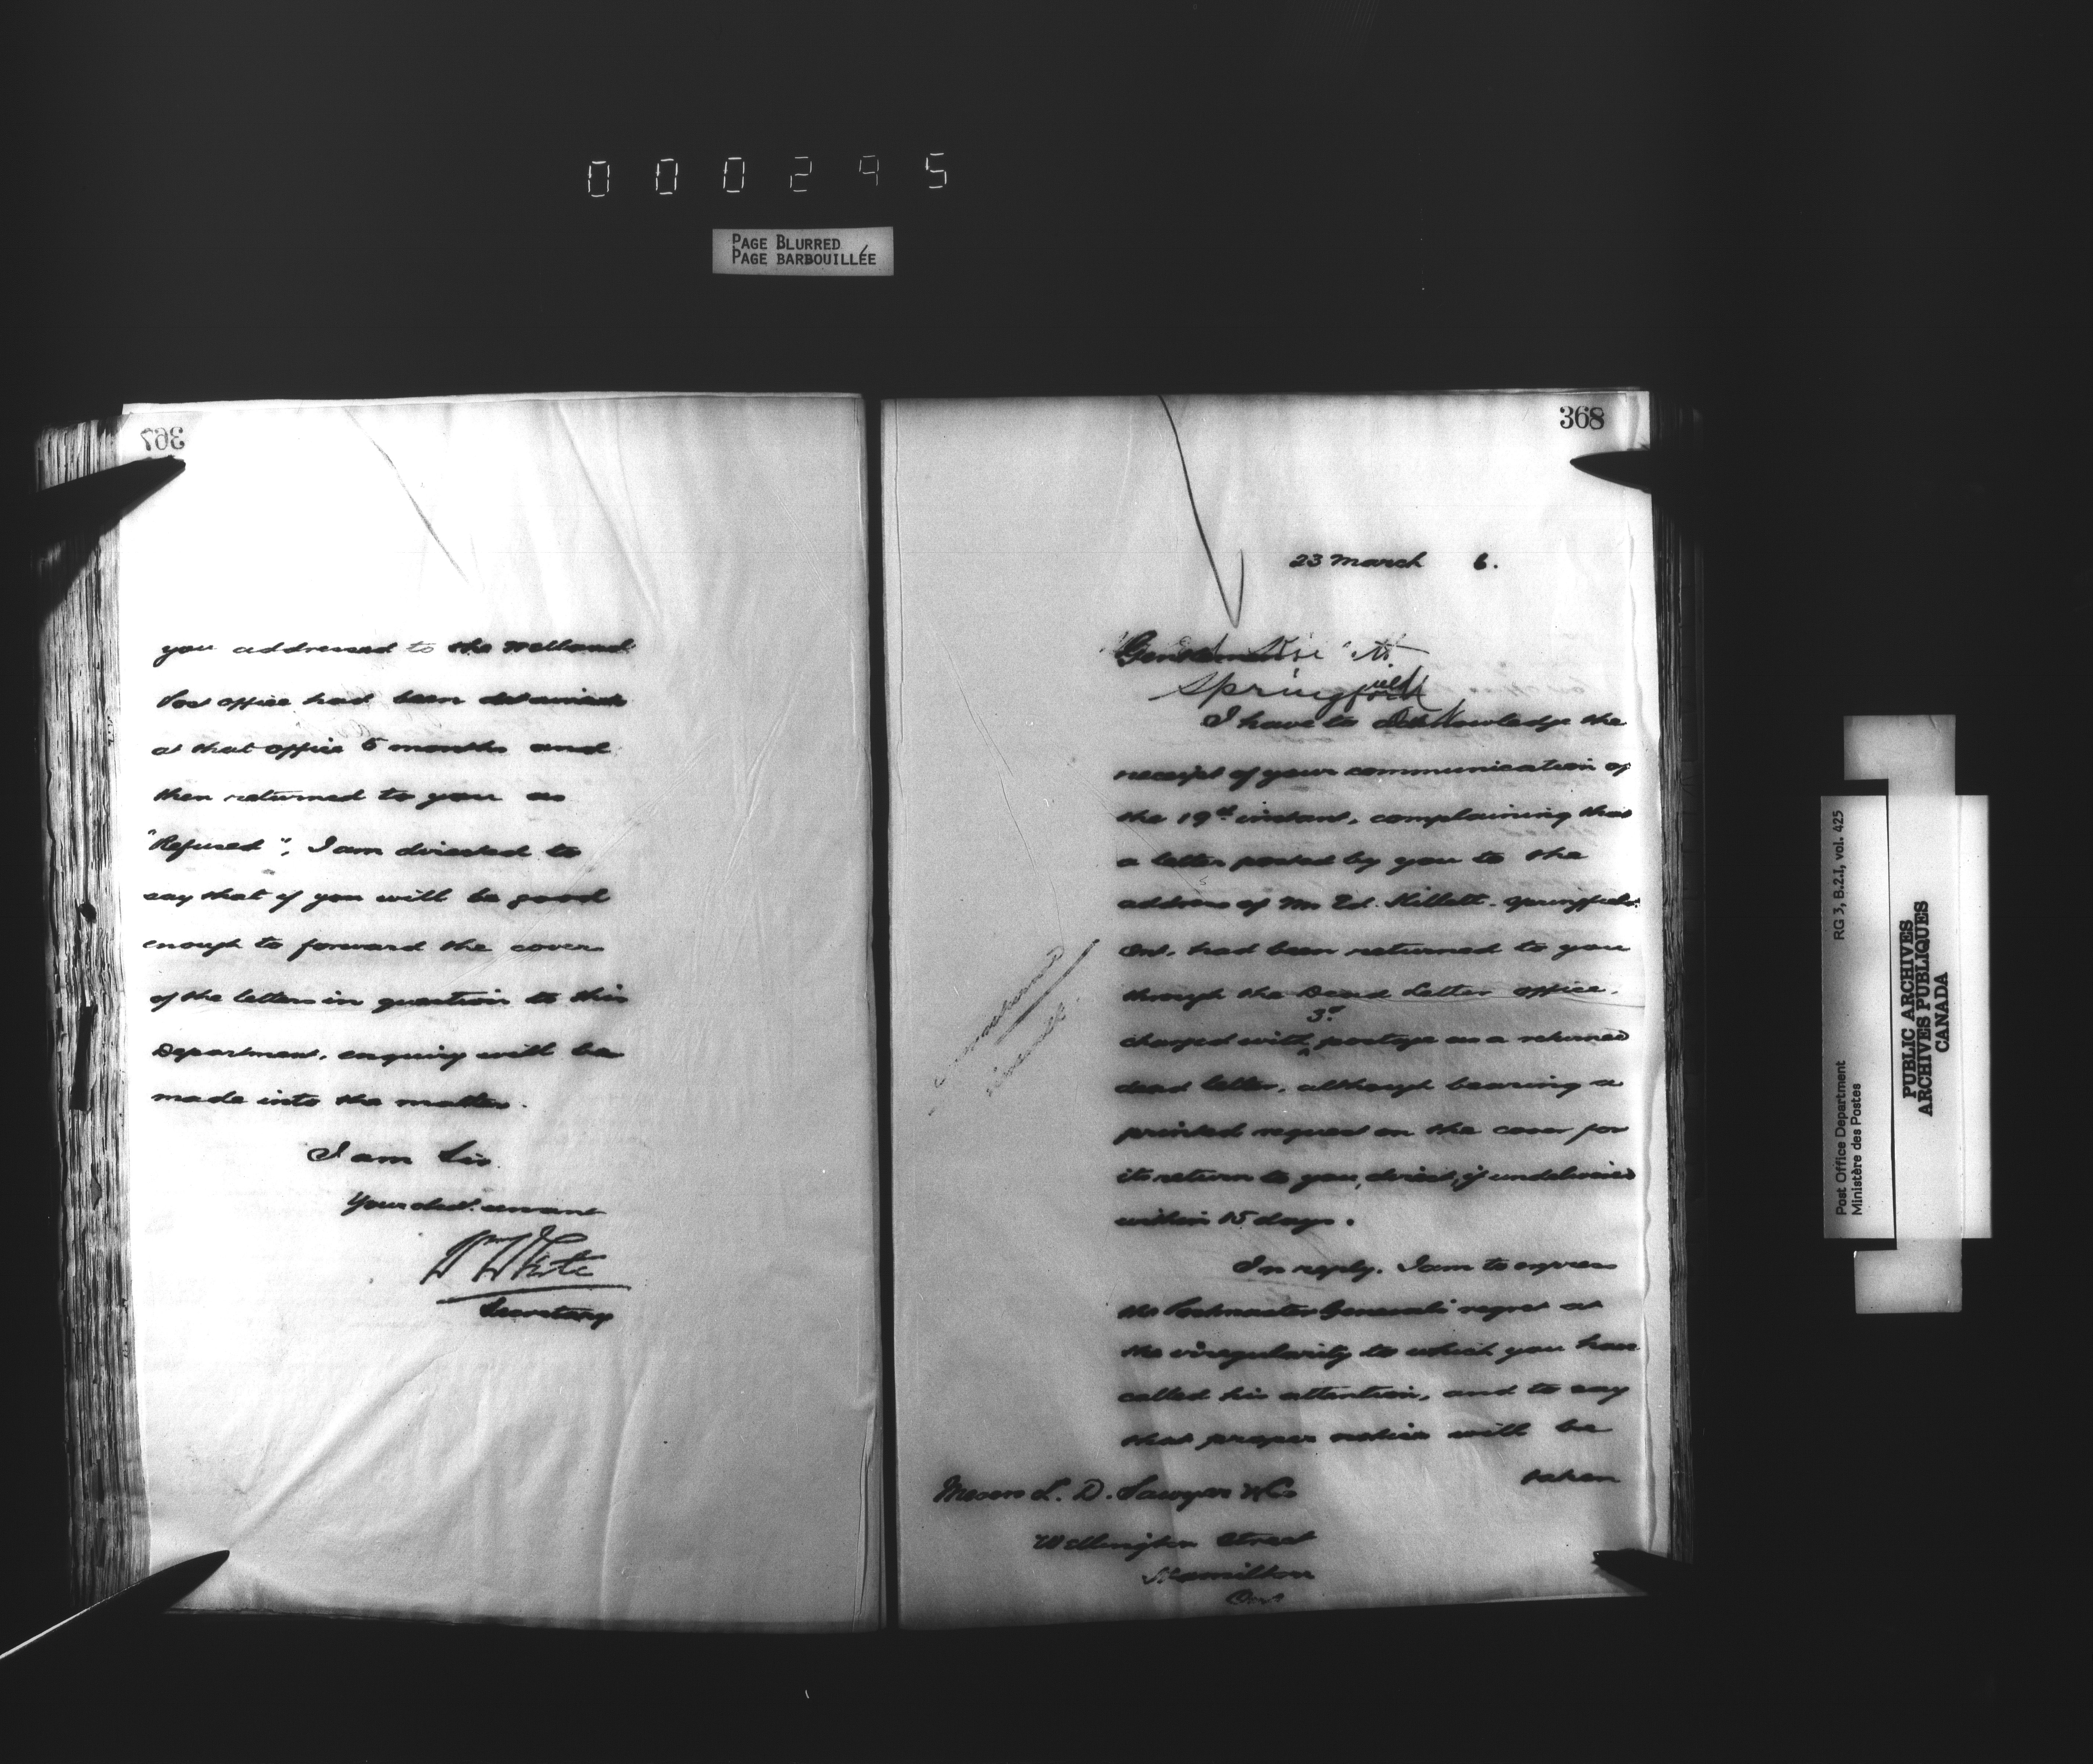 000295
PAGE BLURRED
PAGE BARBOUILLÉE
367
you addressed to the Welland
Post office had been detained
at that office 6 months and
then returned to you as
"Refused", I am directed to
say that if you will be good
enough to forward the cover
of the letter in question to this
Department, enquiry will be
made into the matter.
I am Sir
Your obdt. servant
Wm White
Secretary
368
23 March 6.
Gentlemen
Springfield
I have to acknowledge the
receipt of your communication of
the 19th instant, complaining that
a letter posted by you to the
address of Mr Ed. Killett. Springfield
Ont. had been returned to you
through the Dead Letter office,
3c
charged with postage as a returned
dead letter, although bearing a
printed request on the cover for
its return to you, direct, if undelivered
within 15 days.
In reply, I am to express
the Postmaster General's regret at
the irregularity to which you have
called his attention, and to say
that proper notice will be
taken
Messrs L. D. Sawyer & Co
Wellington Street
Hamilton
Ont
Post Office Department
Ministère des Postes
RG 3, B.2.I, vol. 425
PUBLIC ARCHIVES
ARCHIVES PUBLIQUES
CANADA